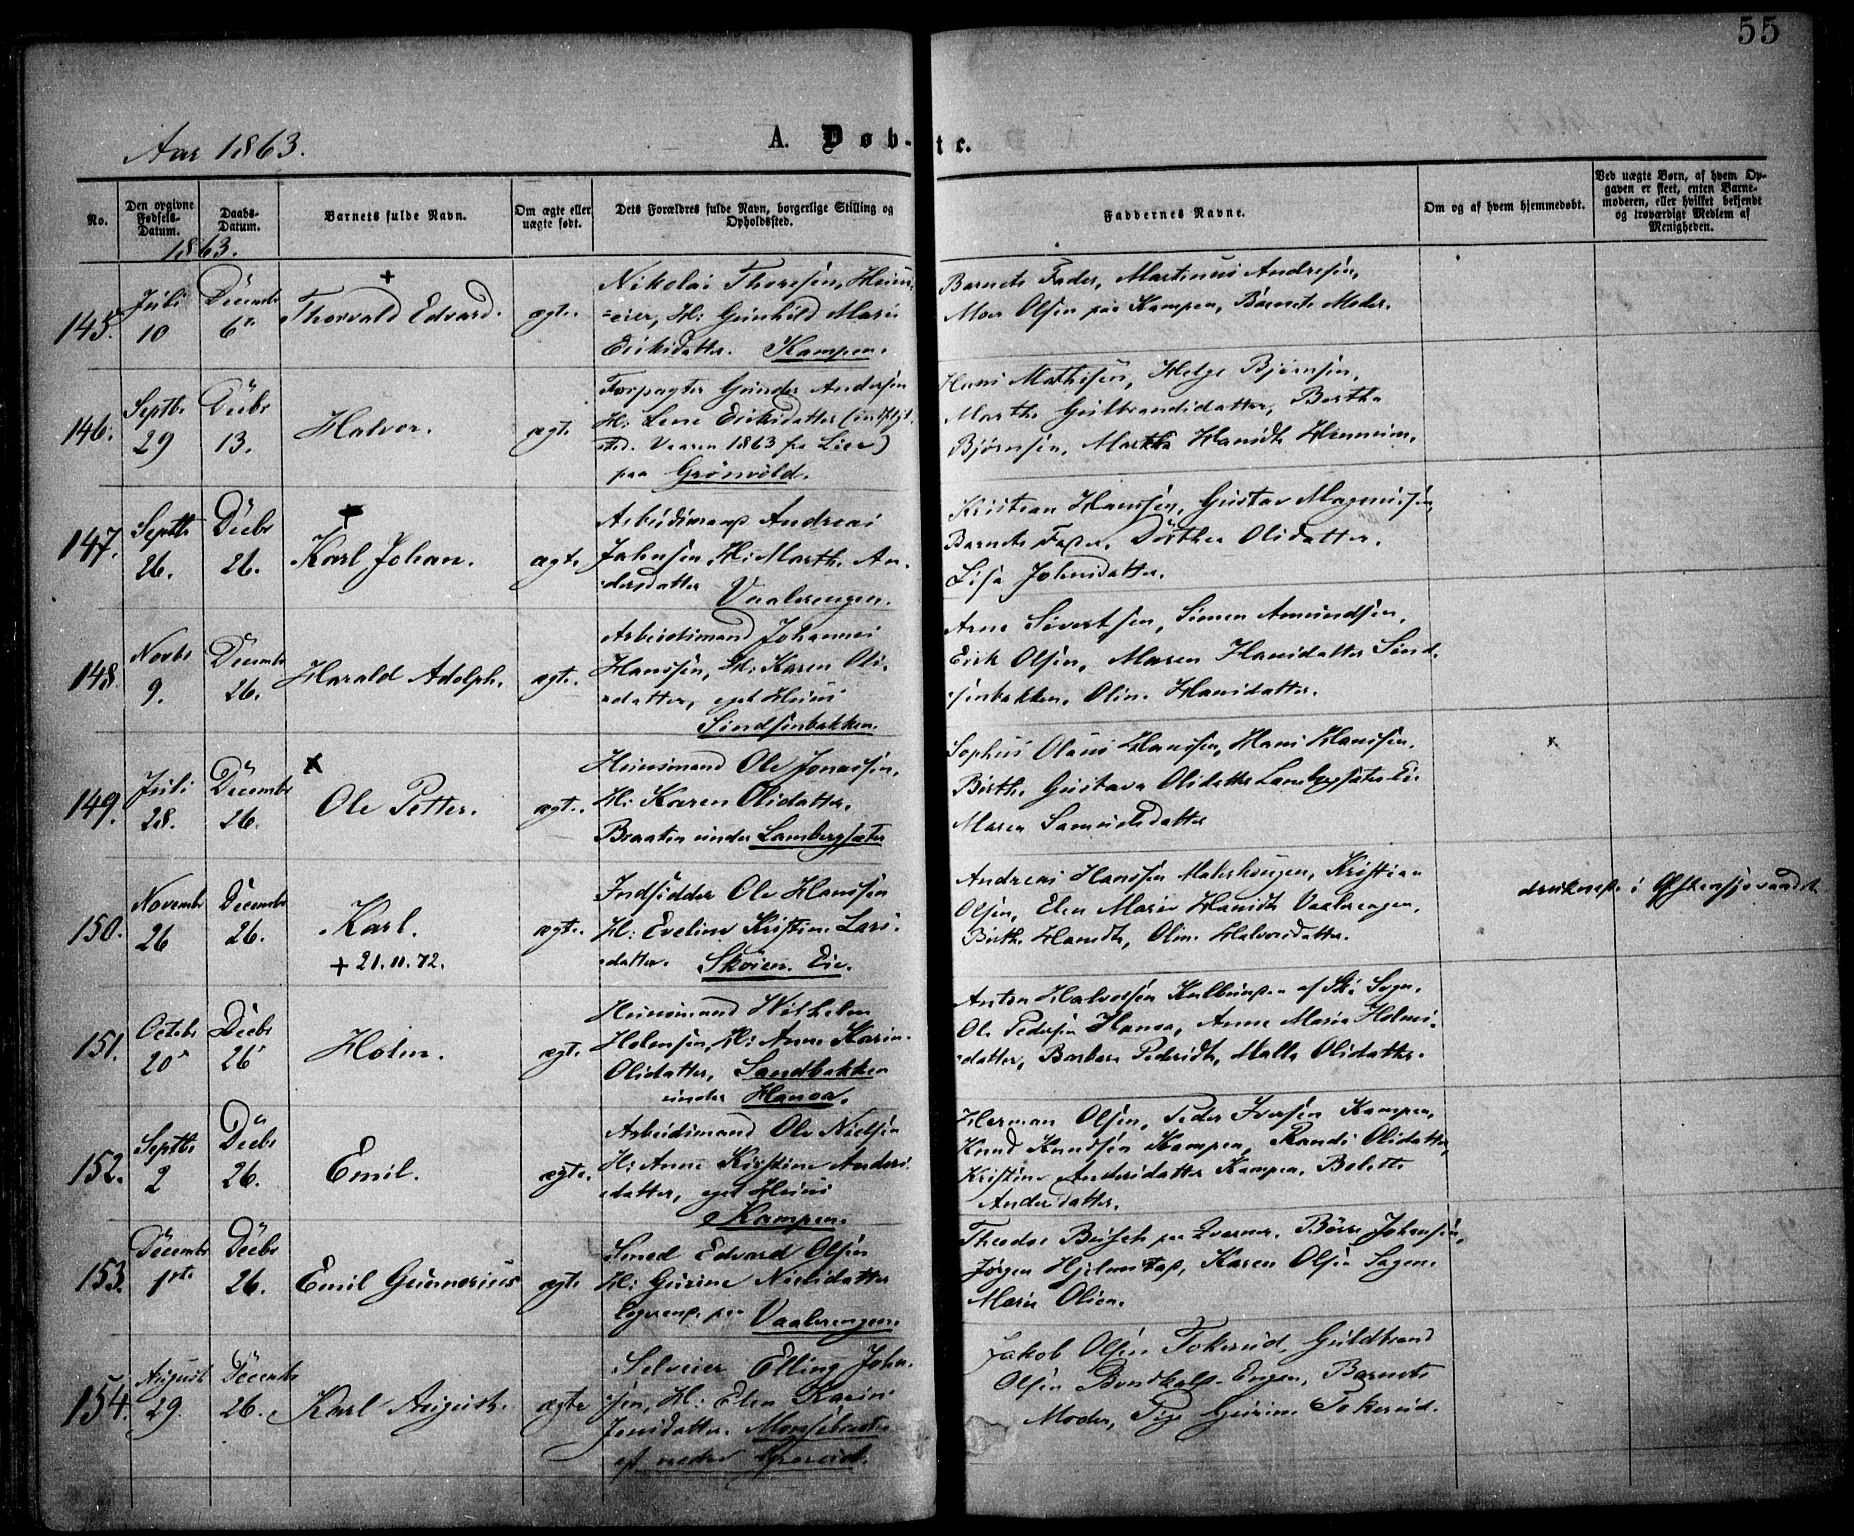 55
Aar 1863.
A. Døb-te.
No.
Den opgivne Fødsels-Datum.
Daabs-Datum.
Barnets fulde Navn.
Om ægte eller uægte født.
Dets Forældres fulde Navn, borgerlige Stilling og Opholdssted.
Faddernes Navne.
Om og af hvem hjemmedøbt.
Ved uægte Børn, af hvem Opgaven er skeet, enten Barnemoderen, eller hvilket bekjendt og troværdigt Medlem af Menigheden.
1863.
145.
Juli 10
Decembr 6
+
Thorvald Edvard.
ægte.
Nikolai Thoresen, Huus-
=eier, H: Gunhild Marie
Eriksdatter. Kampen.
Barnets Fader, Martinus Andresen,
Moer Olsen paa Kampen, Barnets Moder.
146.
Septbr 29
Decbr 13.
Halvor.
ægte
Forpagter Gunder Andersen
H: Lene Eriksdatter (indflyt-
ted. Vaaren 1863 fra Lier)
paa Grønvold.
Hans Mathisen, Helge Bjørnsen,
Marthe Gulbrandsdatter, Berthe
Bjørnsen, Marthe Hansdtr
147.
Septbr 26.
Decbr 26.
+
Karl Johan.
ægte
Arbeidsmand Andreas
Johnsen, H: Marthe An-
dersdatter Vaalerengen.
Kristian Hanssen, Gustav Magnussen
Barnets Fader, Dorthea Olsdatter.
Lisa Johnsdatter.
148.
Novbr 9.
Decembr 26.
Harald Adolph.
ægte.
Arbeidsmand Johannes
Hanssen, H: Karen Ols-
datter, eget Huus
Sindsenbakken.
Arne Sivertsen, Simen Amundsen,
Erik Olsen, Maren Hansdatter Sind-
senbakken, Oline Hansdatter.
149.
Juli 28.
Decembr 26.
x
Ole Petter.
ægte.
Huusmand Ole Jonassen,
H: Karen Olsdatter.
Braaten under Lambergsæter
Sophus Olaus Hanssen, Hans Hanssen.
Birthe Gustava Olsdatter Lambergsæter Eie
Maren Samuelsdatter
150.
Novembr 26
Decembr 26.
Karl.
+ 21.11.72.
ægte.
Indsidder Ole Hanssen
H: Eveline Kristine Lars-
datter. Skøien Eie.
Andreas Hanssen Malerhougen, Kristian
Olsen, Elen Marie Hansdtr Vaalerengen,
Birthe Hansdtr, Oline Halvorsdatter.
druknede i Østensjøvandet
151.
Octobr 20
Decbr 26
Holm.
ægte
Huusmand Wilhelm
Holmsen, H: Anne Karine
Olsdatter, Sandbakken
under Hansa.
Anton Halvorsen af Ski Sogn,
Ole Pedersen Hansa, Anne Maria Holms-
datter, Barbara Pedersdtr, Malla Olsdatter.
152.
Septbr 2
Decbr 26.
Emil.
ægte.
Arbeidsmand Ole Nielsen
H: Anne Kristine Anders-
datter, eget Huus
Kampen.
Herman Olsen, Peder Iversen Kampen,
Knud Knudsen Kampen, Randi Olsdatter,
Kristine Andersdatter Kampen, Bolette
Andersdatter.
153.
Decembr 1ste
Decbr 26.
Emil Gunnerius
ægte
Smed Edvard Olsen
H: Gurine Nielsdatter
paa Vaalerengen.
Theodor paa Kværner, Børre Johansen,
Jørgen Hjelmstad, Karen Olsen Sagene
Marie Olsen.
154.
August 29
Decembr 26.
Karl August.
ægte
Selveier Elling John-
sen, H: Elen Karine
Jensdatter.
af nedre
Jakob Olsen Tokerud, Guldbrand
Olsen Engen, Barnets
Moder, Pige Gurine Tokerud.